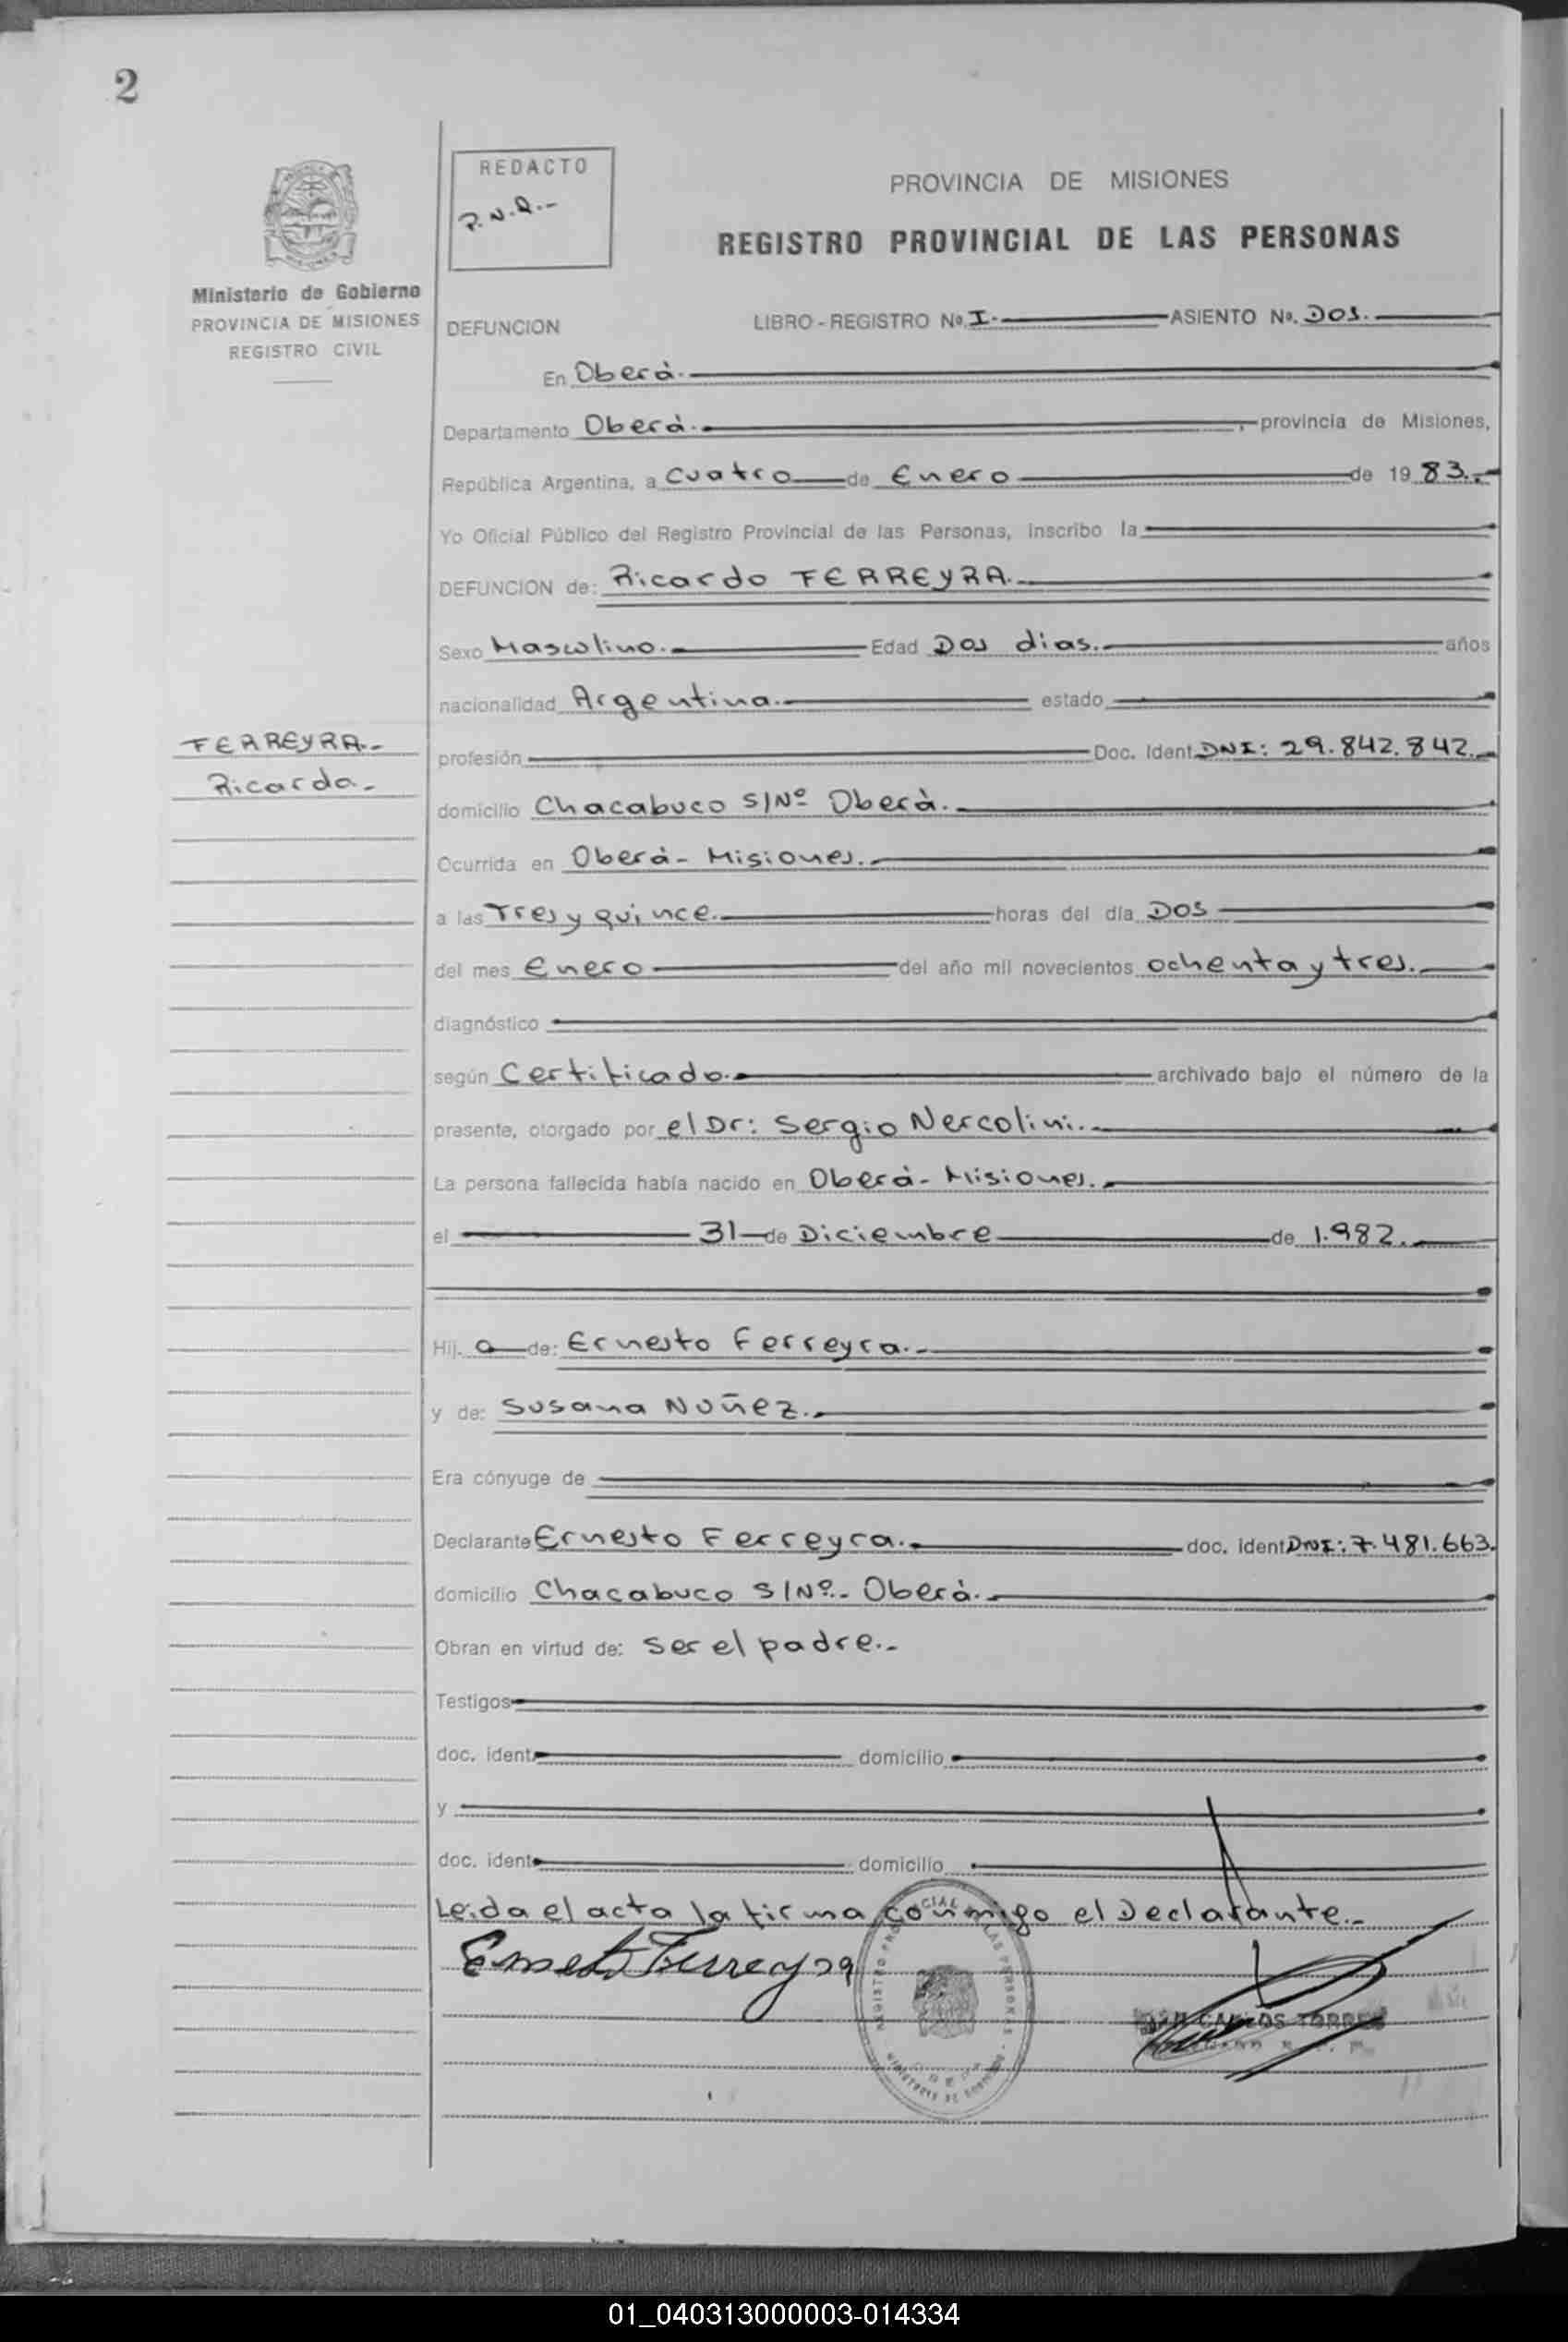 2
REDACTO
R.N.R.-
PROVINCIA DE MISIONES
REGISTRO PROVINCIAL DE LAS PERSONAS
Ministerio de Gobierno
PROVINCIA DE MISIONES
REGISTRO CIVIL
DEFUNCION LIBRO - REGISTRO No. I.- ASIENTO No. DOS.-
En Oberà.-
Departamento Oberà.- , provincia de Misiones,
República Argentina, a Cuatro de Enero de 19 83.-
Yo Oficial Público del Registro Provincial de las Personas, inscribo la
DEFUNCION de: Ricardo FERREYRA.-
Sexo Masculino.- Edad Dos dias.- años
nacionalidad Argentina.- estado
FERREYRA.-
Ricardo.-
profesión Doc. Ident. DNI: 29.842.842.-
domicilio Chacabuco S/Nº Oberà.-
Ocurrida en Oberà- Misiones.-
a las Tres y quince.- horas del día DOS
del mes Enero del año mil novecientos ochenta y tres.-
diagnóstico
según Certificado.- archivado bajo el número de la
presente, otorgado por el Dr: Sergio Nercolini.-
La persona fallecida había nacido en Oberà- Misiones.-
el 31 de Diciembre de 1.982.-
Hij. o de: Ernesto Ferreyra.-
y de: Susana Nuñez.-
Era cónyuge de
Declarante Ernesto Ferreyra.- doc. ident. DNI: 7.481.663.
domicilio Chacabuco S/Nº.- Oberà.-
Obran en virtud de: ser el padre.-
Testigos
doc. ident. domicilio
y
doc. ident. domicilio
Leida el acta la firma conmigo el Declarante.-
Ernesto Ferreyra
CARLOS TORRES
01_040313000003-014334